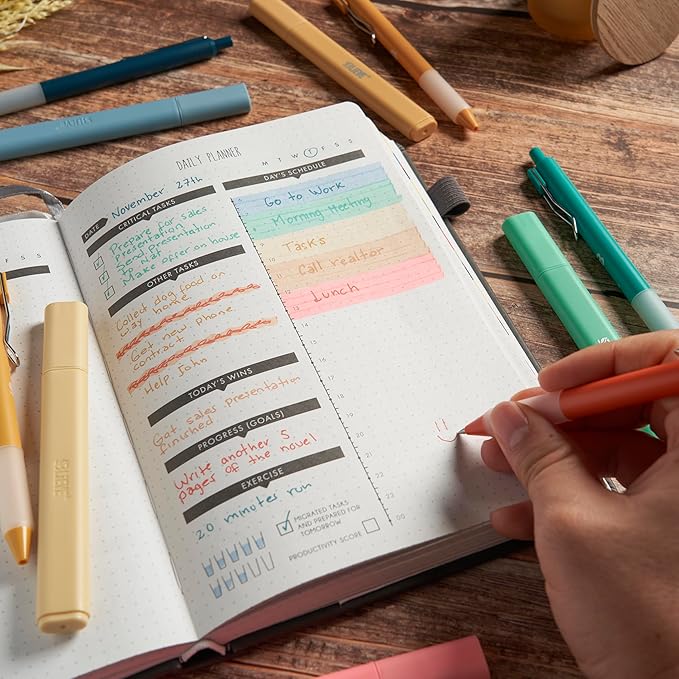 DAILY PLANNER
M T W T F S S
DATE November 27th
CRITICAL TASKS
Prepare for sales
presentation
Send presentation
to Nat
Make offer on house
OTHER TASKS
Collect dog food on
way home
Get new phone
contract
Help John
TODAY'S WINS
Got sales presentation
finished
PROGRESS (GOALS)
Write another 5
pages of the novel
EXERCISE
20 minutes run
MIGRATED TASKS
AND PREPARED FOR
TOMORROW
PRODUCTIVITY SCORE
DAY'S SCHEDULE
Go to Work
Morning Meeting
Tasks
Call realtor
Lunch
13
14
15
16
17
18
19
20
21
22
00
S S